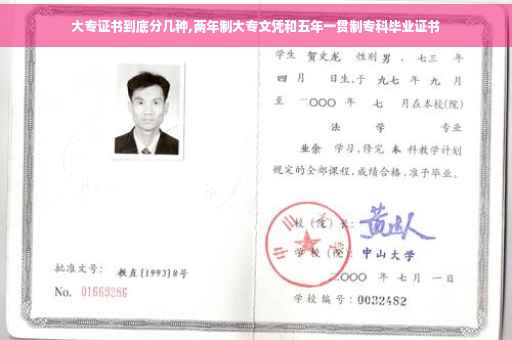 大专证书到底分几种,两年制大专文凭和五年一贯制专科毕业证书
学生 贺文龙 性别 男 、七三 年
四 月 日生,于 九七 年 九 月
至 二〇〇〇 年 七 月在本校(院)
法 学 专业
业余 学习,修完 本 科教学计划
规定的全部课程,成绩合格,准予毕业。
校(院)长:
学 校(院): 中山大学
二〇〇〇 年 七 月 一 日
学校编号: 0032482
批准文号: 教直[1993]8号
No. 01669286